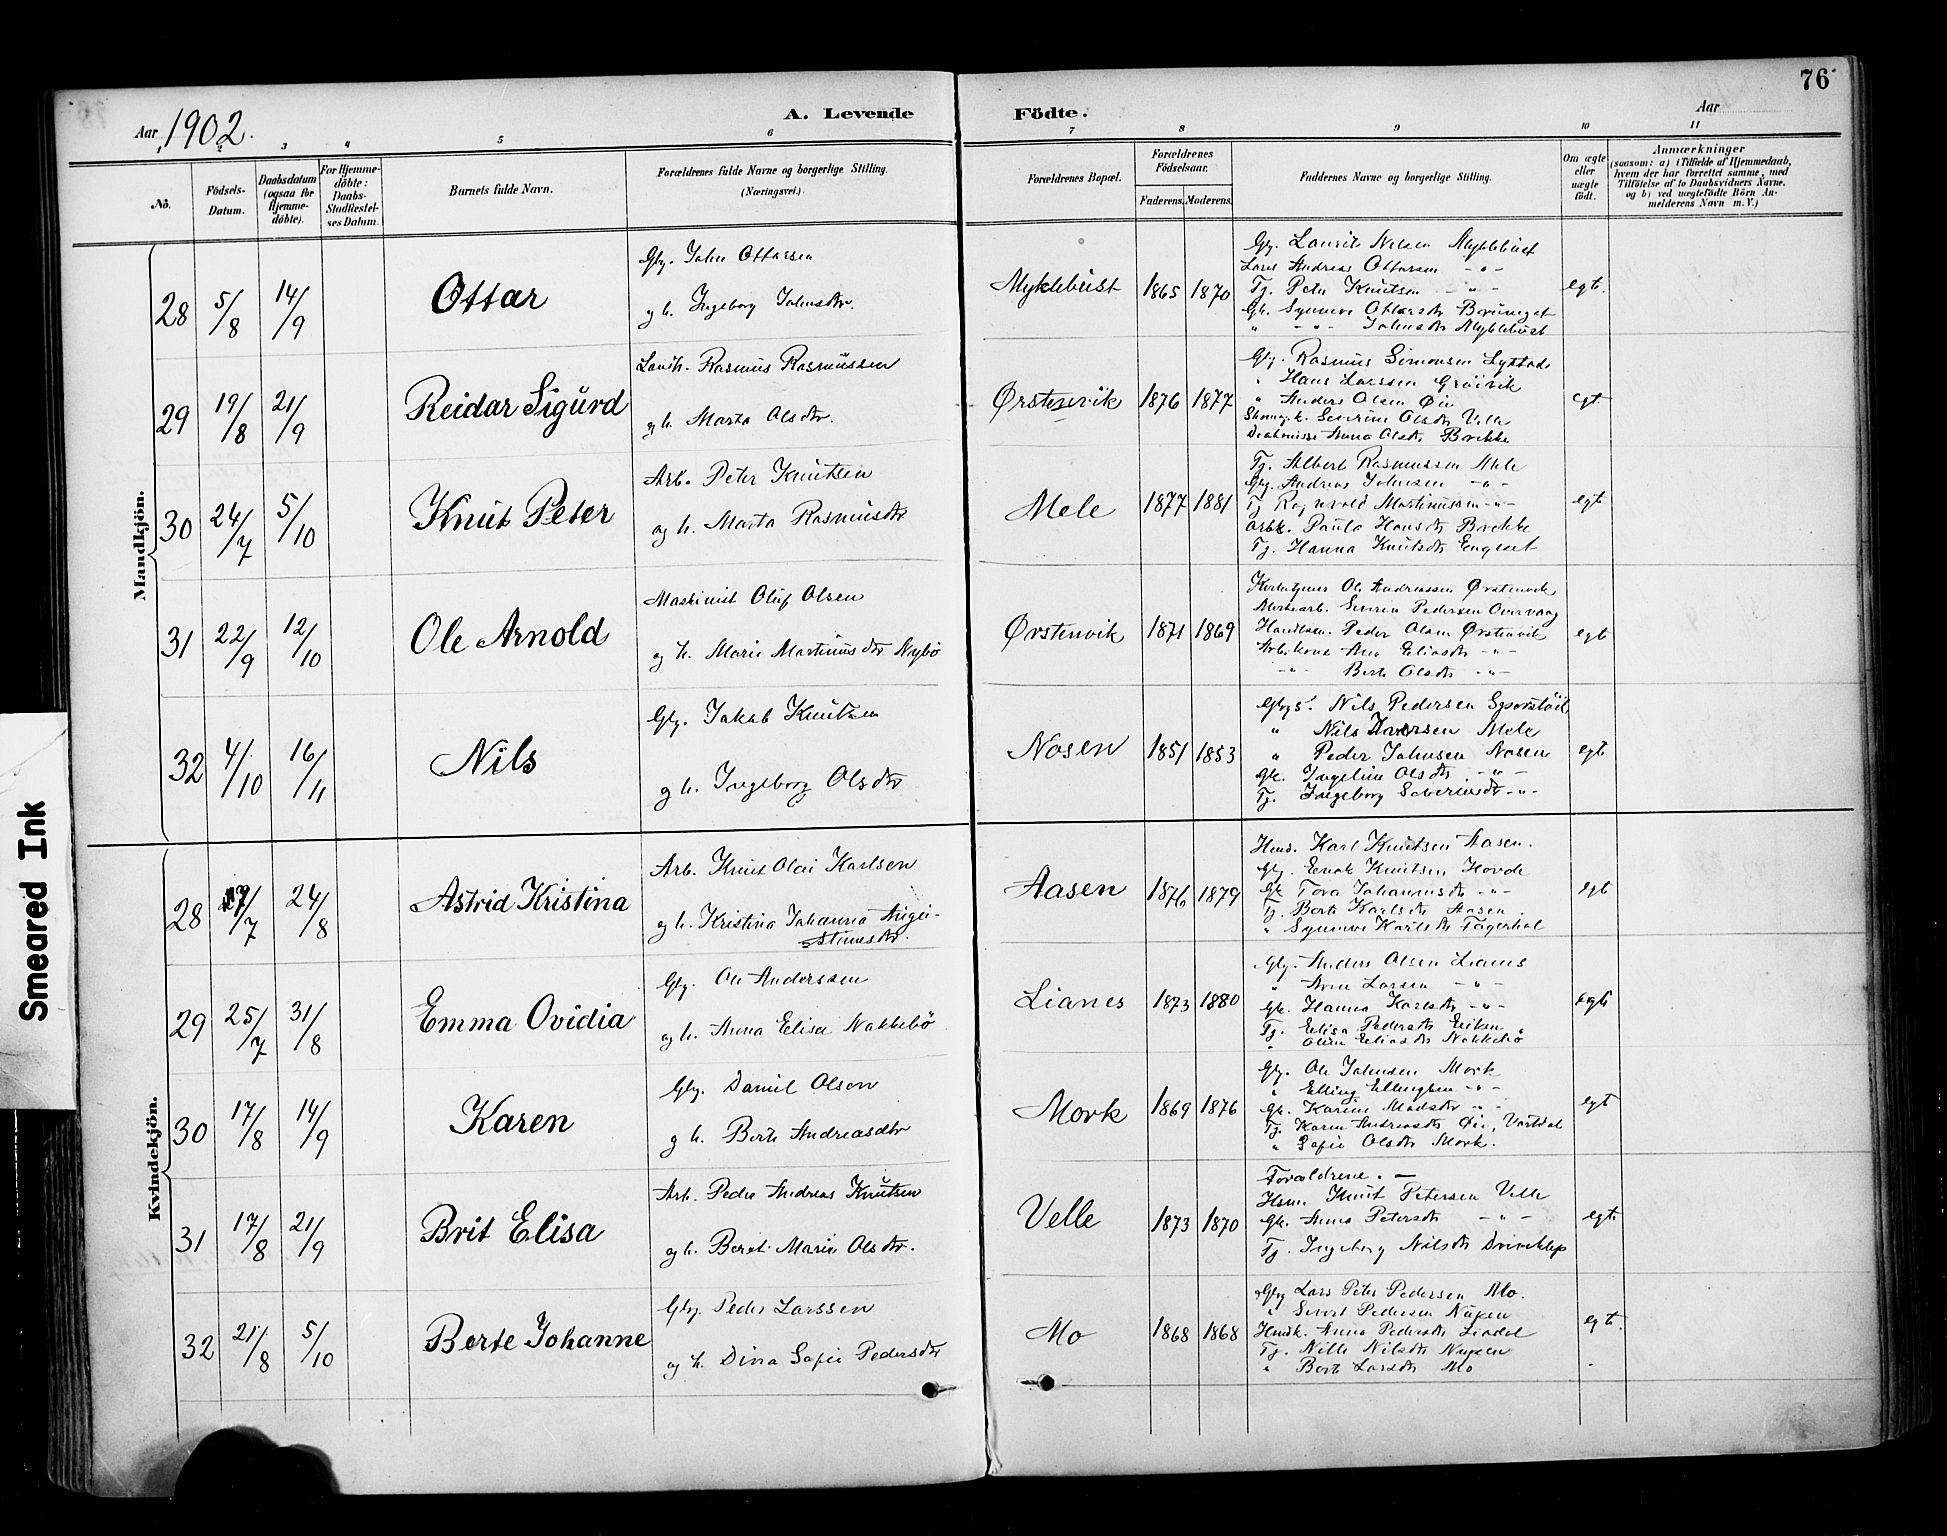 76
Aar 1902.
A. Levende Födte.
Aar
1 2 3 4 5 6 7 8 9 10 11
No.
Födsels-Datum.
Daabsdatum (ogsaa for Hjemme-döbte).
For Hjemme-döbte: Daabs-Stadfæstel-ses Datum.
Barnets fulde Navn.
Forældrenes fulde Navne og borgerlige Stilling.
(Næringsvei.)
Forældrenes Bopæl.
Forældrenes Födselsaar.
Faderens. Moderens.
Faddernes Navne og borgerlige Stilling.
Om ægte eller uægte födt.
Anmærkninger
(saasom: a) i Tilfælde af Hjemmedaab, hvem der har forrettet samme, med Tilföielse af to Daabsvidners Navne, og b) ved uægtefödte Börn An-melderens Navn m. V.)
Mandkjön.
28 5/8 14/9 Ottar
Gbr. John Ottarsen
og h. Ingeborg Johnsdtr.
Myklebust 1865 1870
Laurits Nilsen Myklebust
Andreas Ottarsen -"-
Tj. Peter Knutsen -"-
Gk. Synneve Ottarsdtr
" -"- Johnsdtr Myklebust
egt.
29 19/8 21/9 Reidar Sigurd
Landh. Rasmus Rasmussen
og h. Marta Olsdtr.
Ørstenvik 1876 1877
Rasmus Simonsen
" Hans Larssen
" Anders Olsen Øie
Severine Olsdtr Velle
Anna Olsdtr Brekke
egt.
30 24/7 5/10 Knut Peter
Arb. Peter Knutsen
og h. Marta Rasmusdtr
Mele 1877 1881
Tj. Albert Rasmussen Mele
Andreas Johnsen -"-
Tj. Ragnvald Martinussen -"-
Paula Hansdtr Brekke
Tj. Hanna Knutsdtr Engeset
egt
31 22/9 12/10 Ole Arnold
Maskinist Oluf Olsen
og h. Marie Martinusdtr Nybö
Ørstenvik 1871 1869
Ole Andreassen Ørstenvik
Severin Pedersen Overvaag
Peder Olsen Ørstenvik
Ane Eliasdtr -"-
-"- Berte Olsdtr -"-
egt
32 4/10 16/11 Nils
Gbr. Jakob Knutsen
og h. Ingeborg Olsdtr
Nosen 1851 1853
Nils Pedersen
" Nils Iversen Mele
" Peder Johnsen Nosen
Gk. Ingeline Olsdtr -"-
Tj. Ingeborg Severinsdtr -"-
egt
Kvindekjön.
28 17/7 24/8 Astrid Kristina
Arb. Knut Olai Karlsen
og h. Kristina Johanna Augu-
stinusdtr.
Aasen 1876 1879
Karl Knutsen Aasen.
Enok Knutsen Hovde
Gk Tora Johannesdtr -"-
Tj. Berte Karlsdtr Aasen
" Synneve Karlsdtr
egt
29 25/7 31/8 Emma Ovidia
Gbr. Ole Anderssen
og h. Anna Elisa Nakkebö
Lianes 1873 1880
Anders Olsen Lianes
" Larsen -"-
Gk. Hanna Karlsdtr -"-
Tj. Elisa Pedersdtr
" Oline Eliasdtr Nakkebö
egt
30 17/8 14/9 Karen
Gbr. Daniel Olsen
og h. Berte Andreasdtr
Mork 1869 1876
Ole Johnsen Mork
" Elling Ellingsen -"-
Gk. Karine Madsdtr -"-
Tj. Karen Andreasdtr Øie, Vartdal
" Sofie Olsdtr Mork.
egt
31 17/8 21/9 Brit Elisa
Arb. Peder Andreas Knutsen
og h. Beret Marie Olsdtr.
Velle 1873 1870
Forældrene. -
Knut Petersen Velle
Gk. Anna Petersdtr -"-
Tj. Ingeborg Nilsdtr
egt.
32 21/8 5/10 Berte Johanne
Gbr. Peder Larssen
og h. Dina Sofie Pedersdtr
Mo 1868 1868
Lars Peter Pedersen Mo.
" Sivert Pedersen
Anna Pedersdtr
Tj. Nille Nilsdtr
" Berte Larsdtr Mo
egt.
Smeared Ink